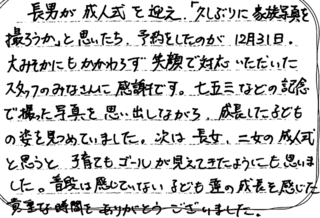 長男が成人式を迎え、「久しぶりに家族写真を
撮ろうか」と思いたち、予約をしたのが12月31日。
大みそかにもかかわらず笑顔で対応いただいた
スタッフのみなさんに感謝です。七五三などの記念
で撮った写真を思い出しながら、成長した子ども
の姿を見つめていました。次は長女、二女の成人式
と思うと、子育てもゴールが見えてきたようにも思いま
した。普段は感じていない子ども達の成長を感じた
貴重な時間をありがとうございました。